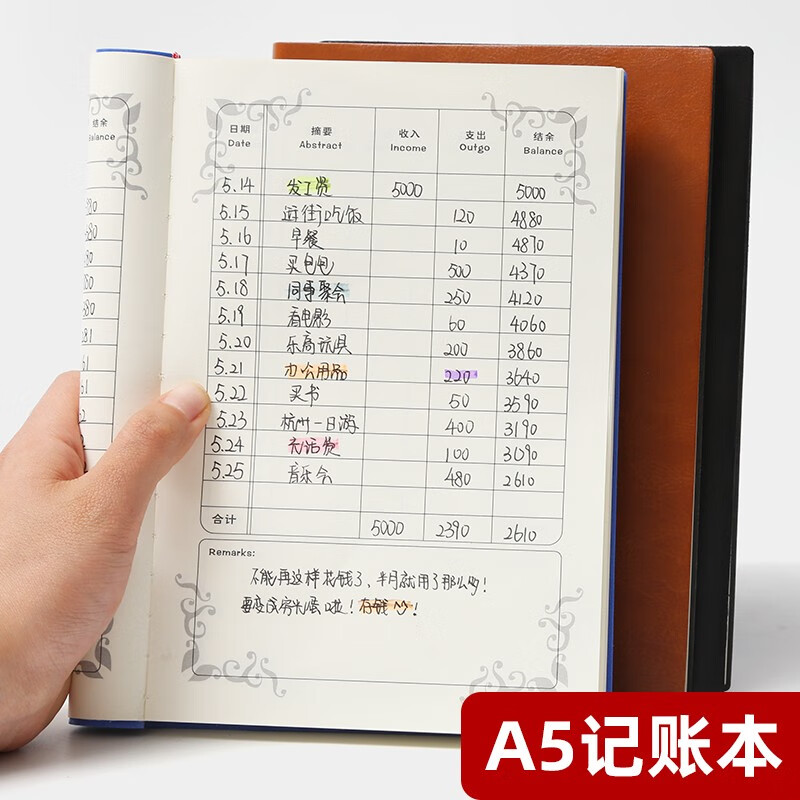 结余
Balance
日期 摘要 收入 支出 结余
Date Abstract Income Outgo Balance
5.14 发工资 5000 5000
5.15 逛街吃饭 120 4880
5.16 早餐 10 4870
5.17 买包包 500 4370
5.18 同事聚会 250 4120
5.19 看电影 60 4060
5.20 乐高玩具 200 3860
5.21 办公用品 220 3640
5.22 买书 50 3590
5.23 杭州一日游 400 3190
5.24 电话费 100 3090
5.25 音乐会 480 2610
合计 5000 2390 2610
Remarks:
不能再这样花钱了、半月就用了那么多!
要变成穷光蛋啦!存钱!
A5记账本